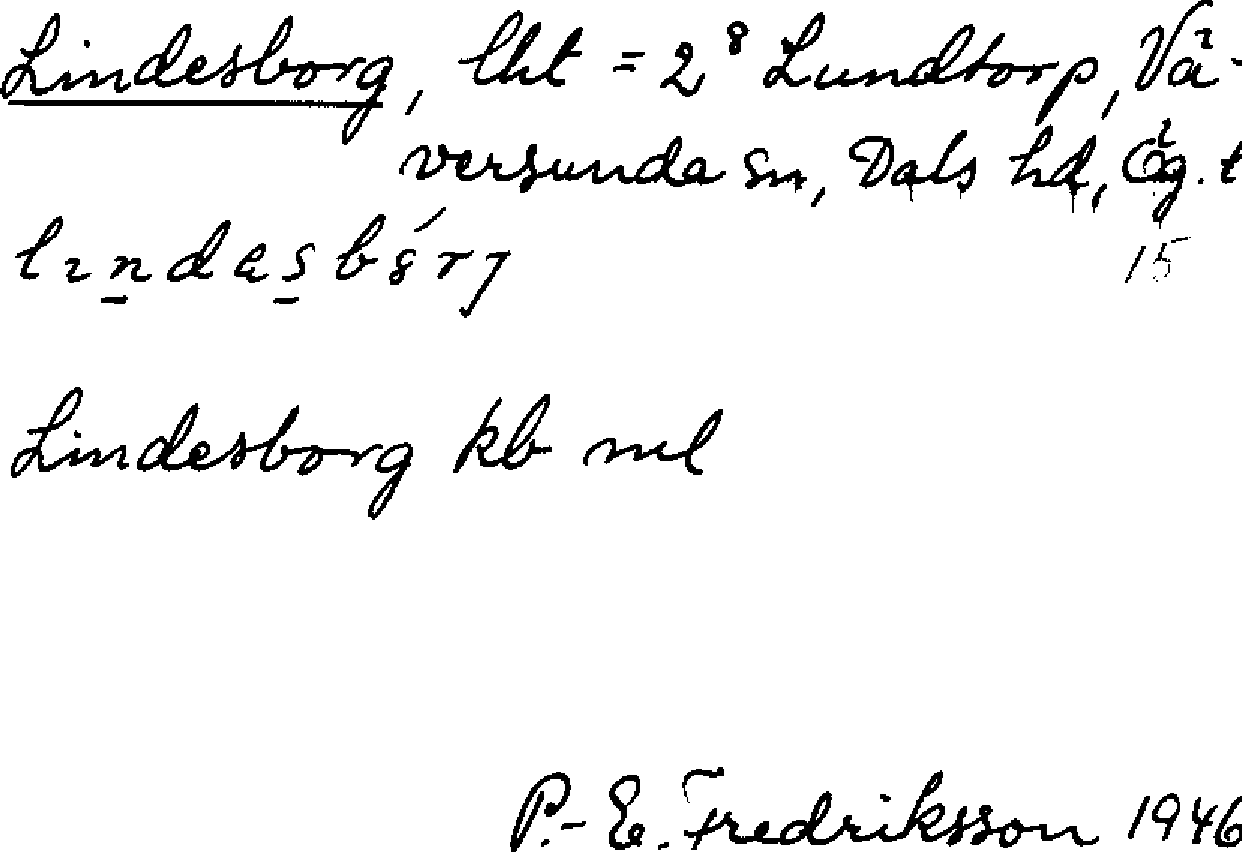 Lindesborg, lht = 2⁸ Lundtorp, Vä-
versunda sn, Dals hd, Ög. t
15
Lindesborg kb ml
P.-E. Fredriksson 1946